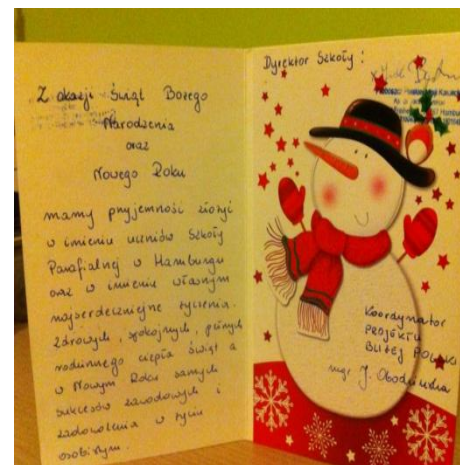 Z okazji Świąt Bożego
Narodzenia
oraz
Nowego Roku
mamy przyjemność złożyć
w imieniu uczniów Szkoły
Parafialnej w Hamburgu
oraz w imieniu własnym
najserdeczniejsze życzenia.
Zdrowych, spokojnych, pełnych
rodzinnego ciepła Świąt a
w Nowym Roku samych
sukcesów zawodowych i
zadowolenia w życiu
osobistym.
Dyrektor Szkoły:
Koordynator
PROJEKTU
BLIŻEJ POLSKI
mgr J.